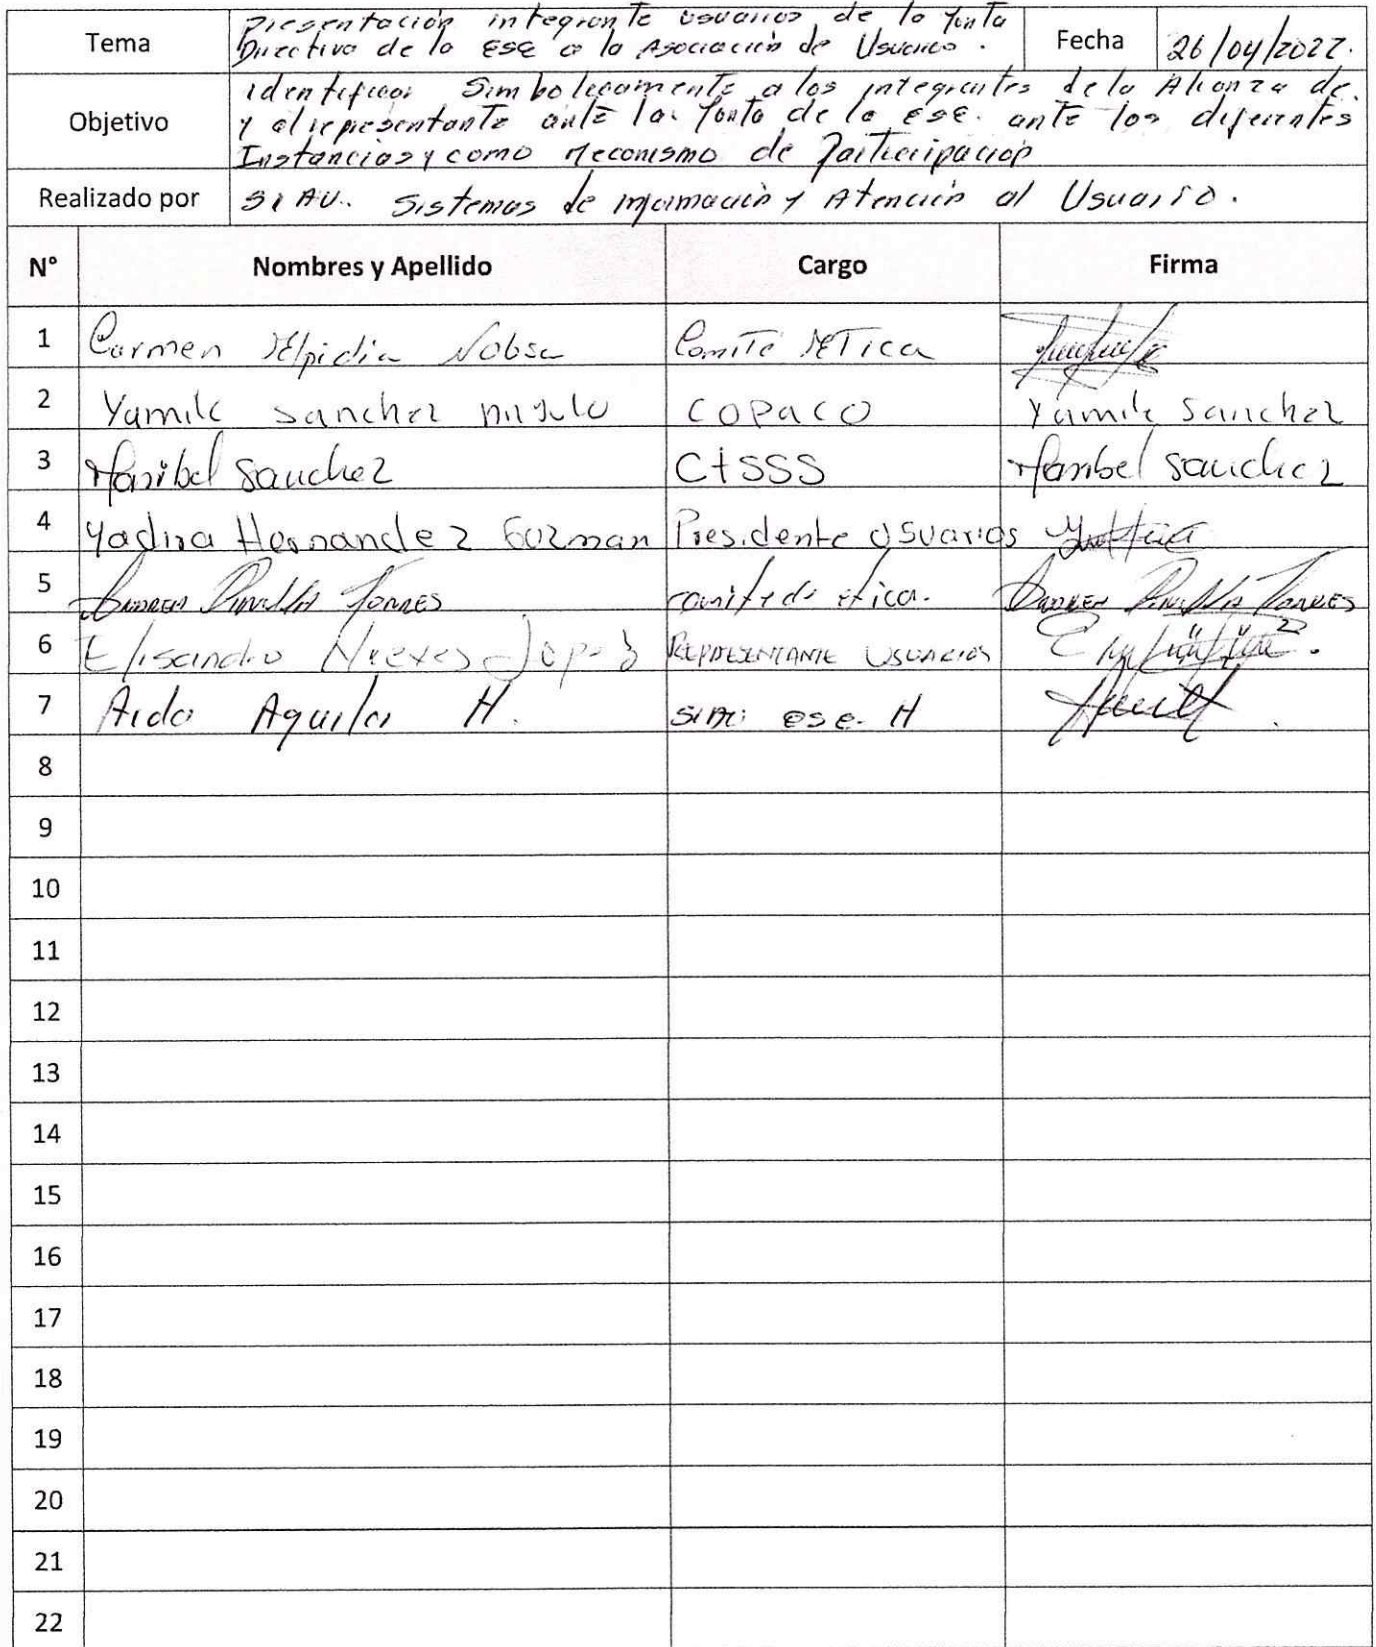 Tema Presentación integrante usuarios de la Junta
Directiva de la ESE a la Asociación de Usuarios.
Fecha 26/04/2022.
Objetivo Identificar Simbolicamente a los integrantes de la Alianza de
y el representante ante la Junta de la ESE. ante los diferentes
Instancias y como Mecanismo de Participación
Realizado por SIAU. Sistemas de información y Atención al Usuario.
N° Nombres y Apellido Cargo Firma
1 Carmen Elpidia Nobsa Comité ETica
2 Yamile Sanchez COPACO Yamile Sanchez
3 Maribel Sanchez CTSSS Maribel Sanchez
4 Yadira Hernandez Guzman Presidente Usuarios
5 Andrea Pinilla Torres comite de etica. Andrea Pinilla Torres
6 Elisandro Nieves REPRESENTANTE USUARIOS
7 Aida Aguilar H. ESE. H
8
9
10
11
12
13
14
15
16
17
18
19
20
21
22